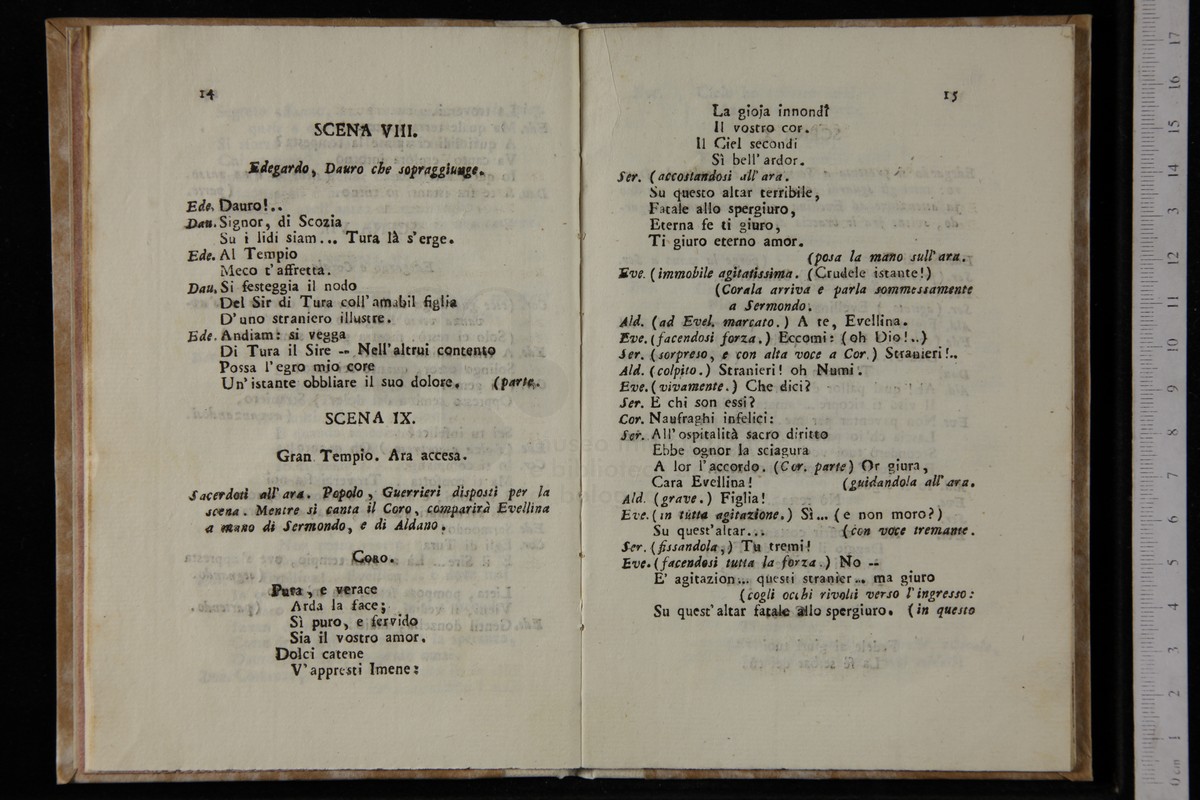 14
SCENA VIII.
Edegardo, Dauro che sopraggiunge.
Ede. Dauro!..
Dau. Signor, di Scozia
Su i lidi siam... Tura là s'erge.
Ede. Al Tempio
Meco t'affretta.
Dau. Si festeggia il nodo
Del Sir di Tura coll'amabil figlia
D'uno straniero illustre.
Ede. Andiam: si vegga
Di Tura il Sire -- Nell'altrui contento
Possa l'egro mio core
Un'istante obbliare il suo dolore. (parte.
SCENA IX.
Gran Tempio. Ara accesa.
Sacerdoti all'ara. Popolo, Guerrieri disposti per la
scena. Mentre si canta il Coro, comparirà Evellina
a mano di Sermondo, e di Aldano.
CORO.
Pura, e verace
Arda la face;
Sì puro, e fervido
Sia il vostro amor.
Dolci catene
V'appresti Imene:
15
La gioja innondi
Il vostro cor.
Il Ciel secondi
Sì bell'ardor.
Ser. (accostandosi all'ara.
Su questo altar terribile,
Fatale allo spergiuro,
Eterna fe ti giuro,
Ti giuro eterno amor.
(posa la mano sull'ara.
Eve. (immobile agitatissima. (Crudele istante!)
(Corala arriva e parla sommessamente
a Sermondo.
Ald. (ad Evel. marcato.) A te, Evellina.
Eve. (facendosi forza.) Eccomi: (oh Dio!..)
Ser. (sorpreso, e con alta voce a Cor.) Stranieri!..
Ald. (colpito.) Stranieri! oh Numi.
Eve. (vivamente.) Che dici?
Ser. E chi son essi?
Cor. Naufraghi infelici:
Ser. All'ospitalità sacro diritto
Ebbe ognor la sciagura
A lor l'accordo. (Cor. parte) Or giura,
Cara Evellina! (guidandola all'ara.
Ald. (grave.) Figlia!
Eve. (in tutta agitazione.) Sì... (e non moro?)
Su quest'altar... (con voce tremante.
Ser. (fissandola.) Tu tremi!
Eve. (facendosi tutta la forza.) No --
E' agitazion... questi stranier... ma giuro
(cogli occhi rivolti verso l'ingresso:
Su quest'altar fatale allo spergiuro. (in questo